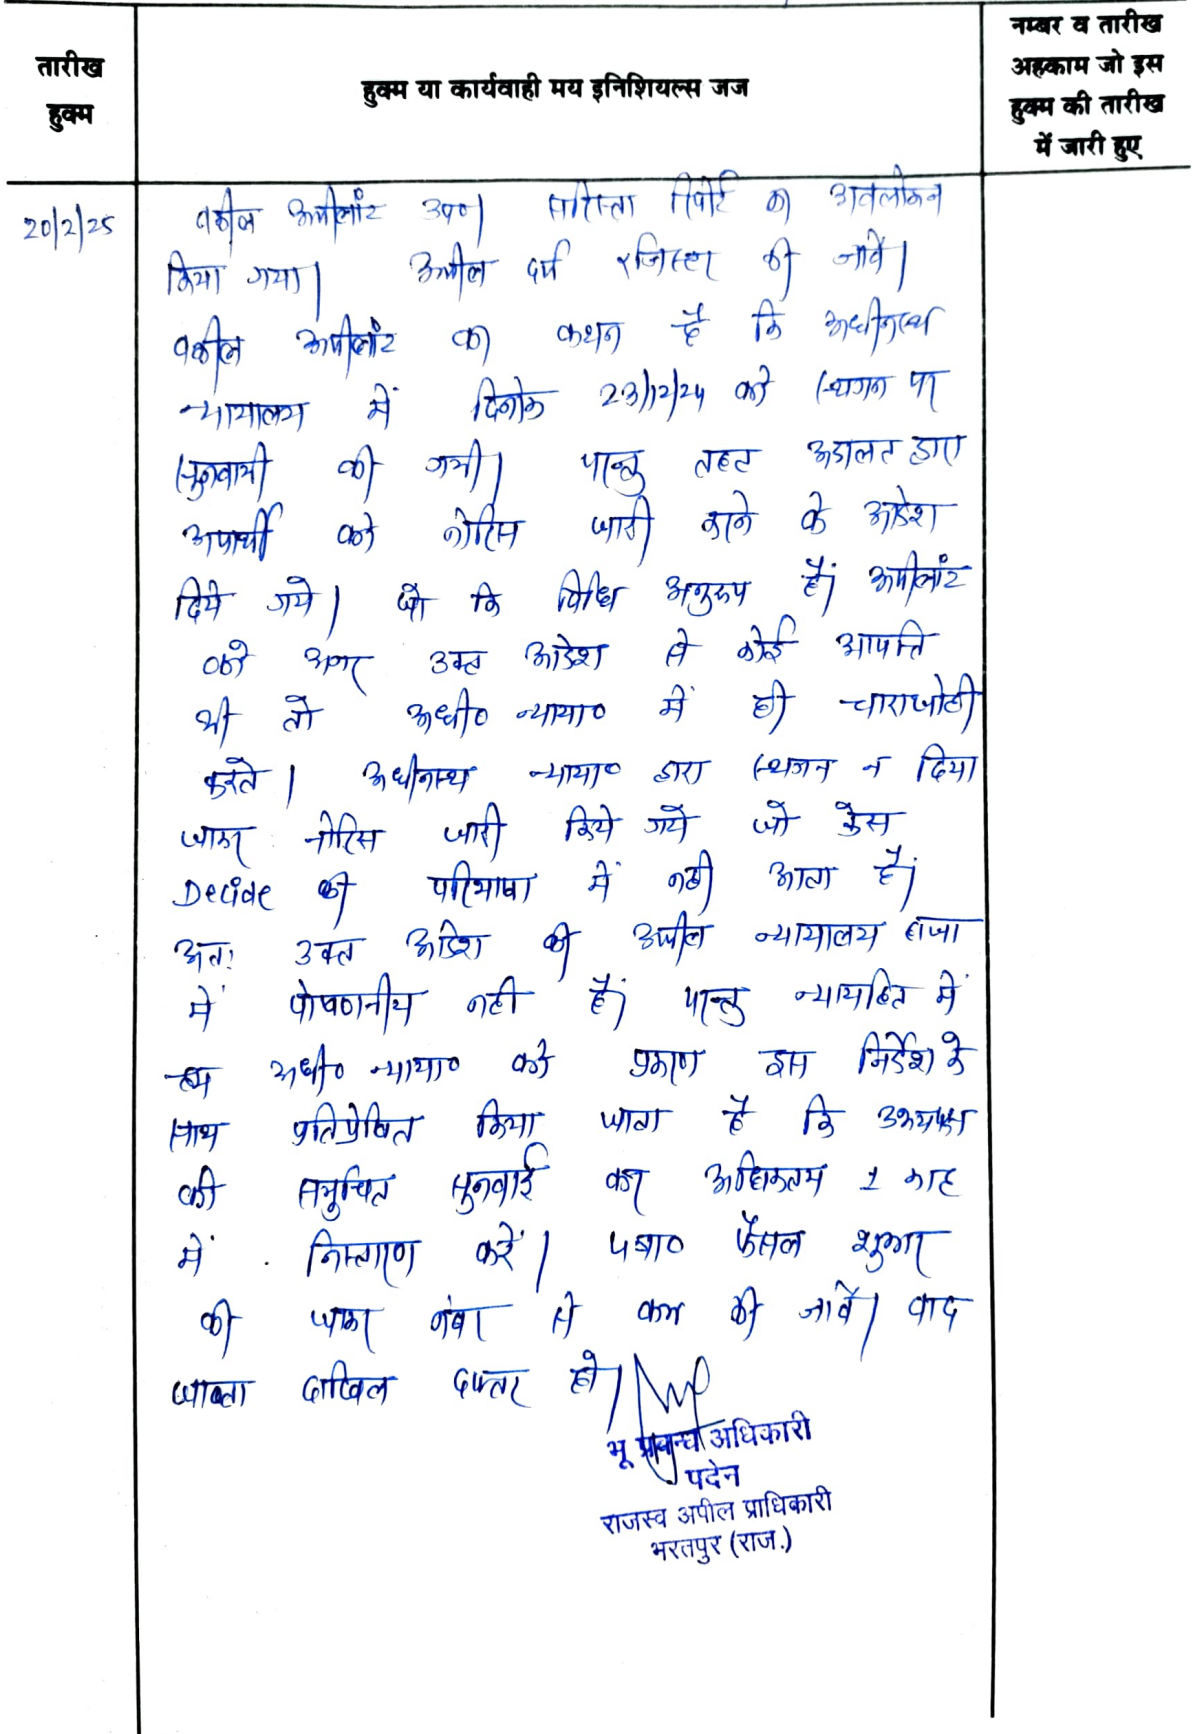 तारीख
हुक्म
हुक्म या कार्यवाही मय इनिशियल्स जज
नम्बर व तारीख
अहकाम जो इस
हुक्म की तारीख
में जारी हुए
20/2/25
वकील अपीलांट उप०। सरिस्ता रिपोर्ट का अवलोकन
किया गया। अपील दर्ज रजिस्टर की जावें।
वकील अपीलांट का कथन है कि अधीनस्थ
न्यायालय में दिनांक 23/12/24 को स्थगन पर
सुनवायी की गयी। परन्तु तहत अदालत द्वारा
अप्रार्थी को नोटिस जारी करने के आदेश
दिये गये। जो कि विधि अनुरुप है। अपीलांट
को अगर उक्त आदेश से कोई आपत्ति
थी तो अधी० न्याया० में ही चाराजोही
करते। अधीनस्थ न्याया० द्वारा स्थगन न दिया
जाकर नोटिस जारी किये गये जो केस
Decide की परिभाषा में नही आता है।
अतः उक्त आदेश की अपील न्यायालय हाजा
में पोषणनीय नही है। परन्तु न्यायहित में
अधी० न्याया० को प्रकरण इस निर्देश के
साथ प्रतिप्रेषित किया जाता है कि उभयपक्ष
की समुचित सुनवाई कर अधिकतम 1 माह
में निस्तारण करें। पत्रा० फैसल शुमार
की जाकर नंबर से कम की जावें। वाद
जाब्ता दाखिल दफ्तर हो।
भू प्रबन्ध अधिकारी
पदेन
राजस्व अपील प्राधिकारी
भरतपुर (राज.)